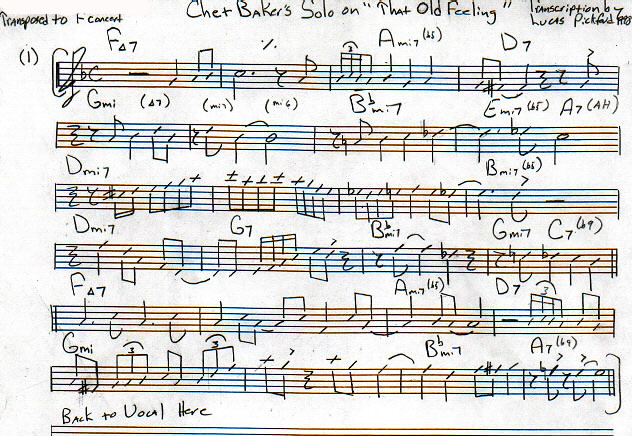 Transposed to F concert
Chet Baker's Solo on "That Old Feeling"
Transcription by
Lucas Pickford
(1)
FΔ7 ٪ Ami7(b5) D7
3
Gmi (Δ7) (mi7) (mi6) Bbmi7 Emi7(b5) A7(Alt)
Dmi7 Bmi7(b5)
Dmi7 G7 Bbmi7 Gmi7 C7(b9)
FΔ7 Ami7(b5) D7
3
Gmi Bbmi7 A7(b9)
3 3
Back to Vocal Here